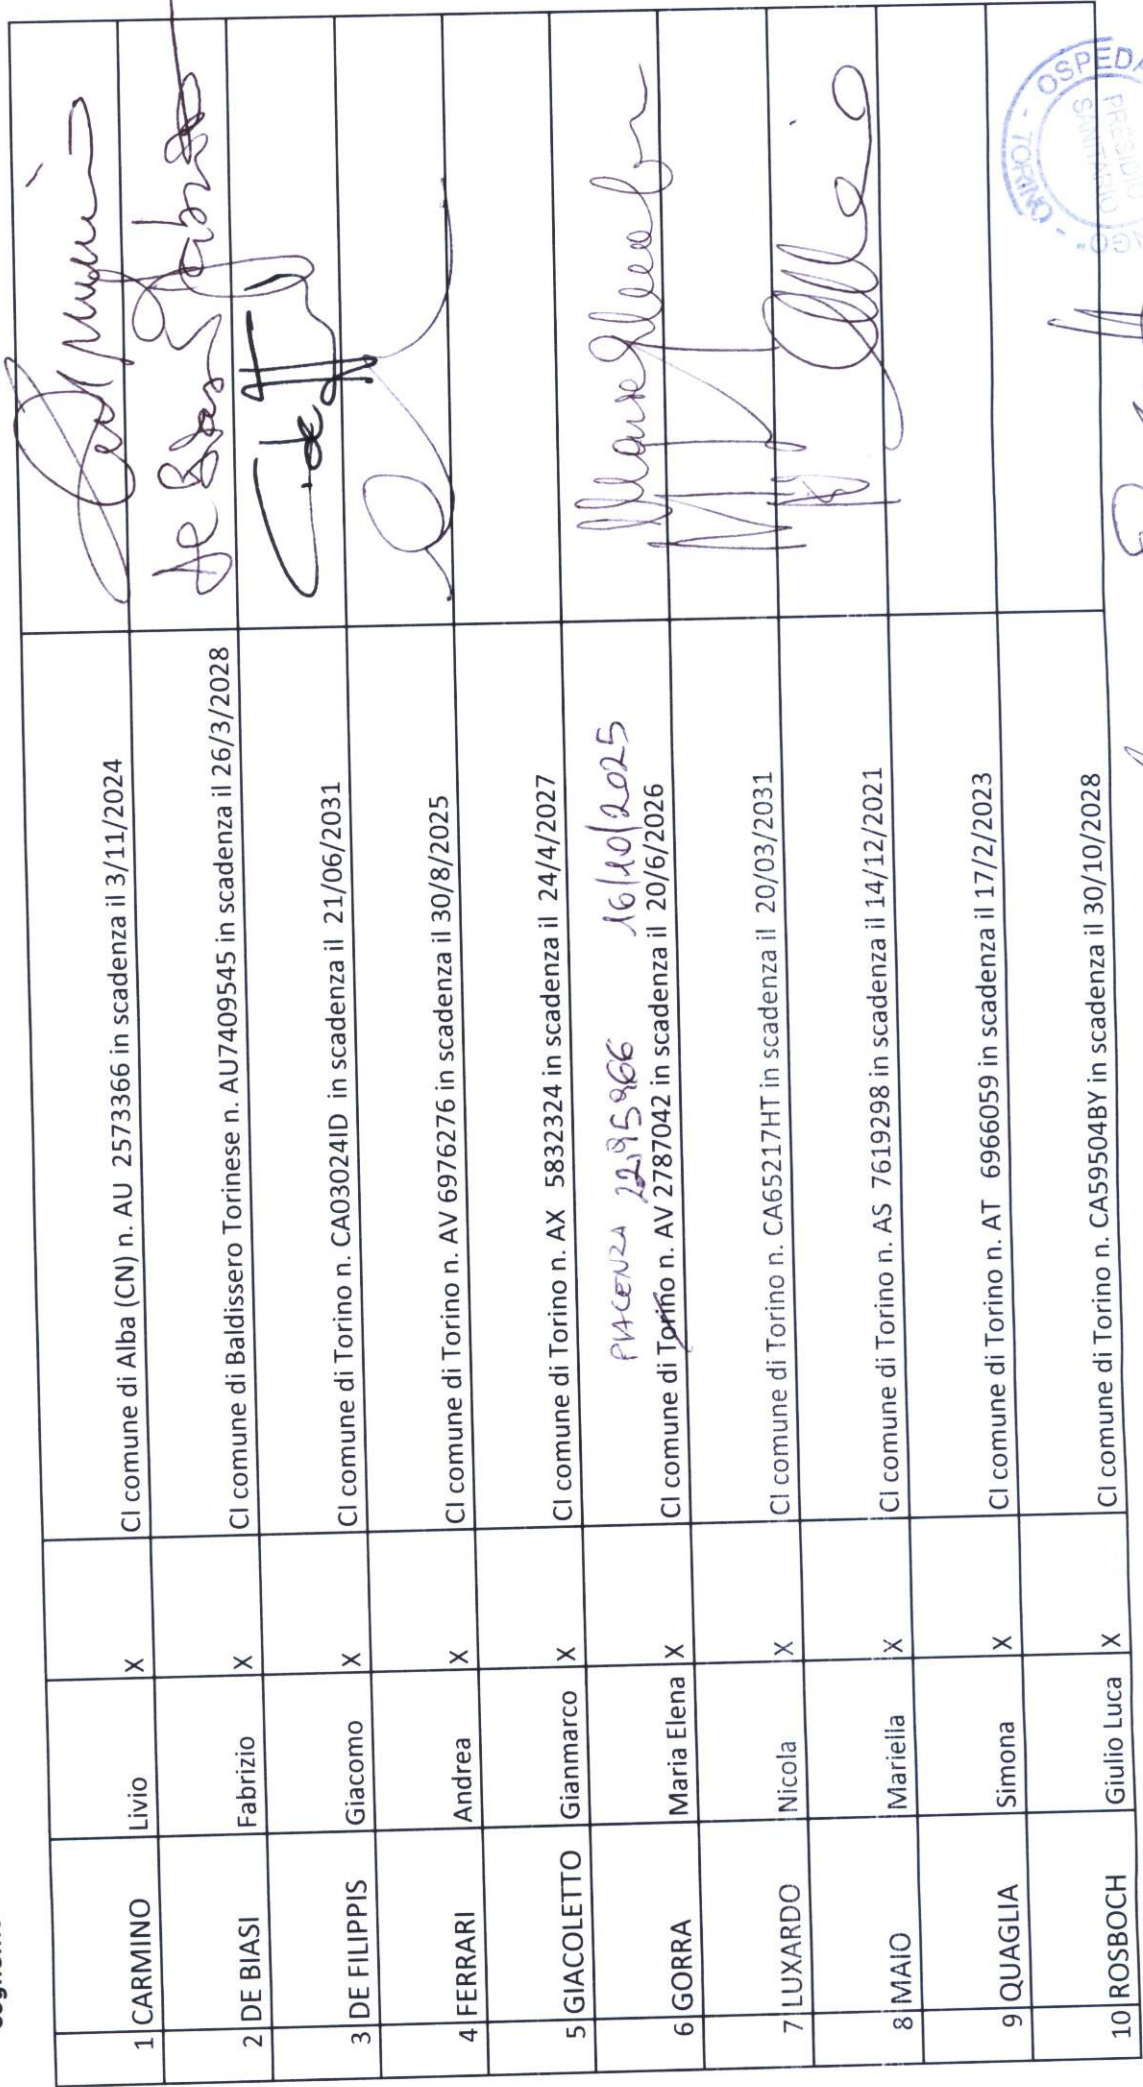 Cognome
1 CARMINO Livio X CI comune di Alba (CN) n. AU 2573366 in scadenza il 3/11/2024
2 DE BIASI Fabrizio X CI comune di Baldissero Torinese n. AU7409545 in scadenza il 26/3/2028 De Biasi Fabrizio
3 DE FILIPPIS Giacomo X CI comune di Torino n. CA03024ID in scadenza il 21/06/2031
4 FERRARI Andrea X CI comune di Torino n. AV 6976276 in scadenza il 30/8/2025
5 GIACOLETTO Gianmarco X CI comune di Torino n. AX 5832324 in scadenza il 24/4/2027
PIACENZA 16/10/2025
6 GORRA Maria Elena X CI comune di Torino n. AV 2787042 in scadenza il 20/6/2026
7 LUXARDO Nicola X CI comune di Torino n. CA65217HT in scadenza il 20/03/2031
8 MAIO Mariella X CI comune di Torino n. AS 7619298 in scadenza il 14/12/2021
9 QUAGLIA Simona X CI comune di Torino n. AT 6966059 in scadenza il 17/2/2023
10 ROSBOCH Giulio Luca X CI comune di Torino n. CA59504BY in scadenza il 30/10/2028
TORINO - OSPEDA
PRESIDIO
SANITARIO